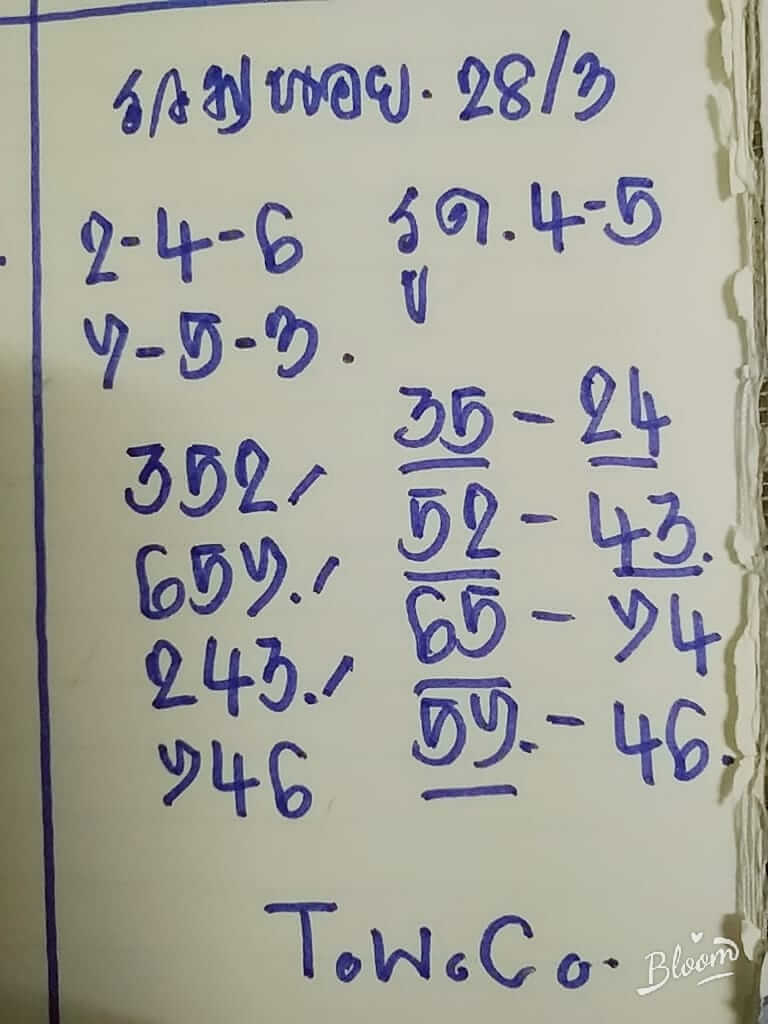 รวมหอย. 28/3
2-4-6
7-5-3.
รูด. 4-5
352/
657./
243./
746
35-24
52-43.
65-74
57.-46.
T.W.C.
Bloom